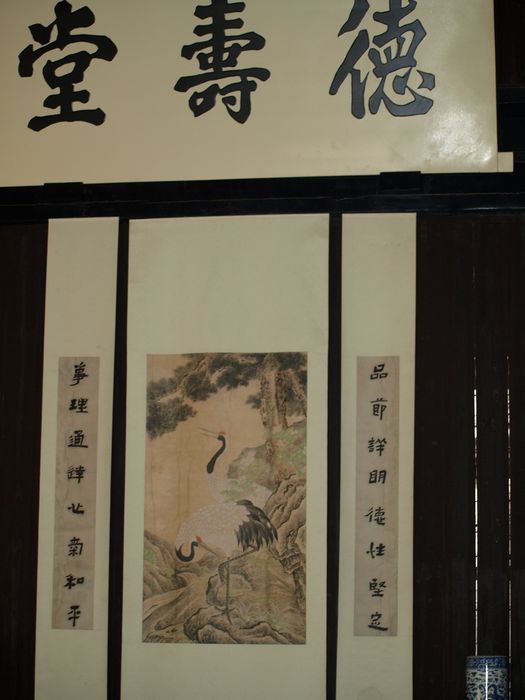 德壽堂
品節詳明德性堅定
事理通達心氣和平